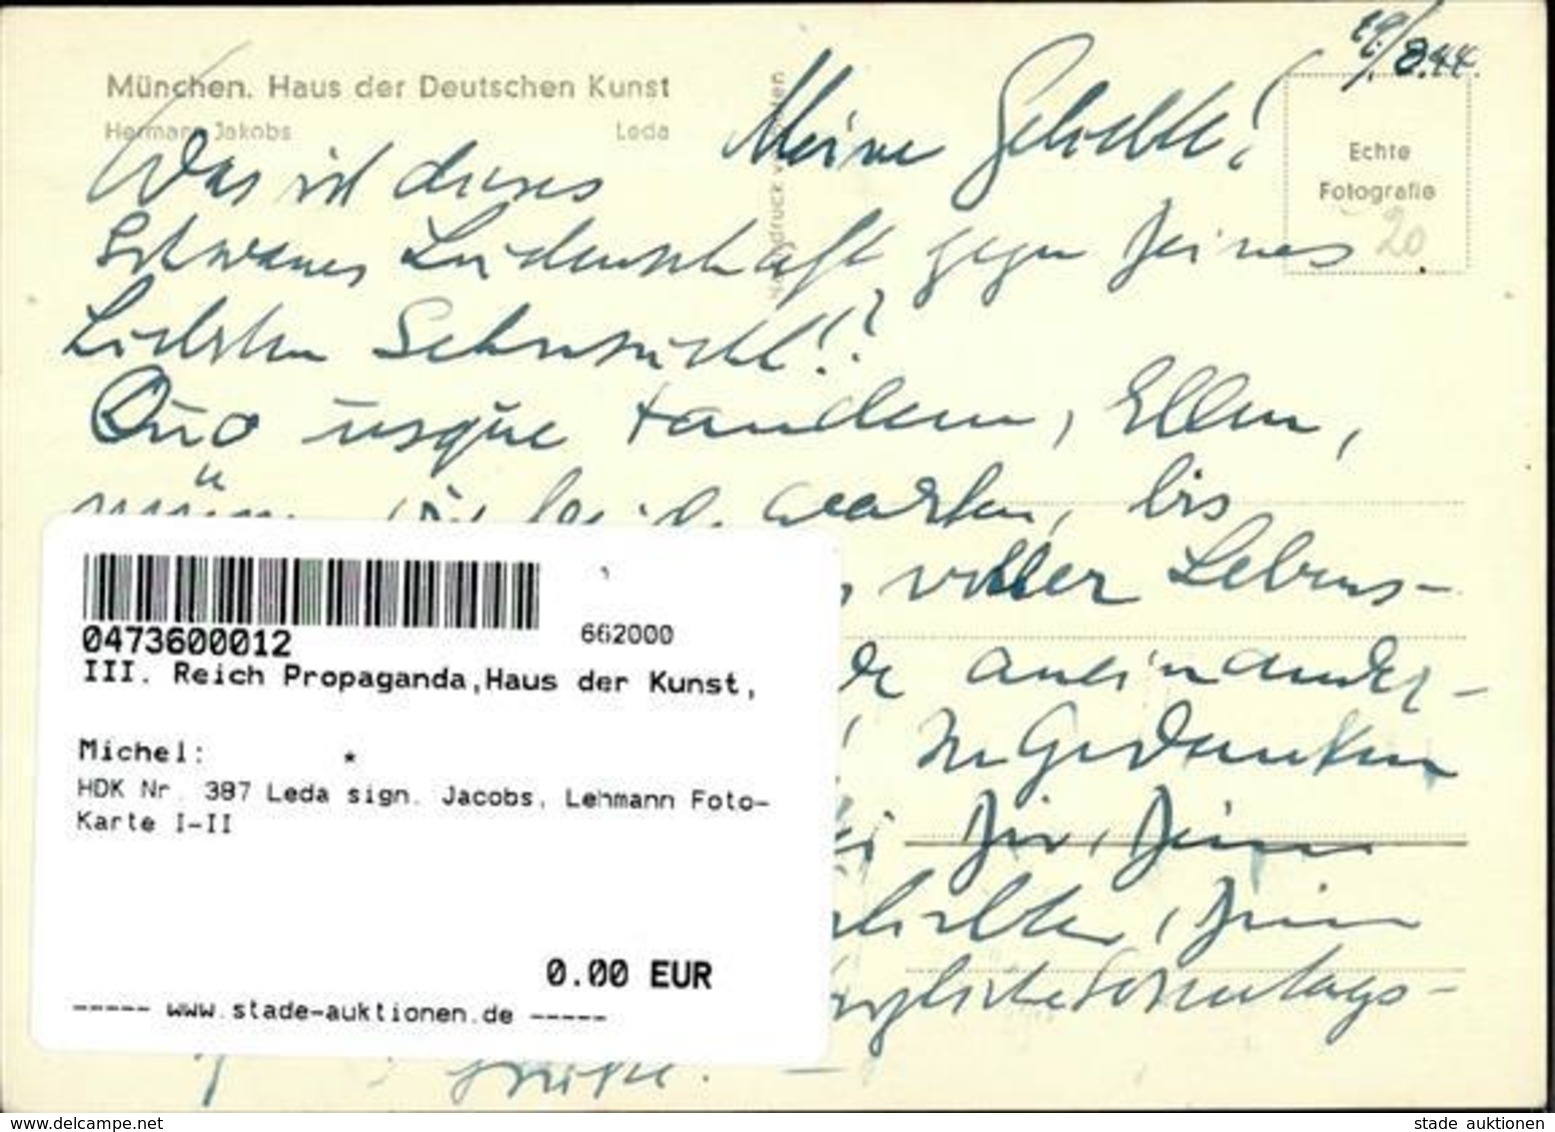 29./8.44.
München. Haus der Deutschen Kunst
Hermann Jakobs Leda
Meine Geliebte!
Echte
Fotografie
20
Was ist dieses
Schwanes Leidenschaft gegen Deines
Liebsten Sehnsucht!?
Quo usque tandem, Ellen,
wir beide warten, bis
voller Lebens-
aneinander-
In Gedanken
Dir, Deine
Geliebter, Dein
Sonntags-
Grüße.
0473600012 662000
III. Reich Propaganda,Haus der Kunst,
Michel: *
HDK Nr. 387 Leda sign. Jacobs, Lehmann Foto-
Karte I-II
0.00 EUR
----- www.stade-auktionen.de -----
stade auktionen